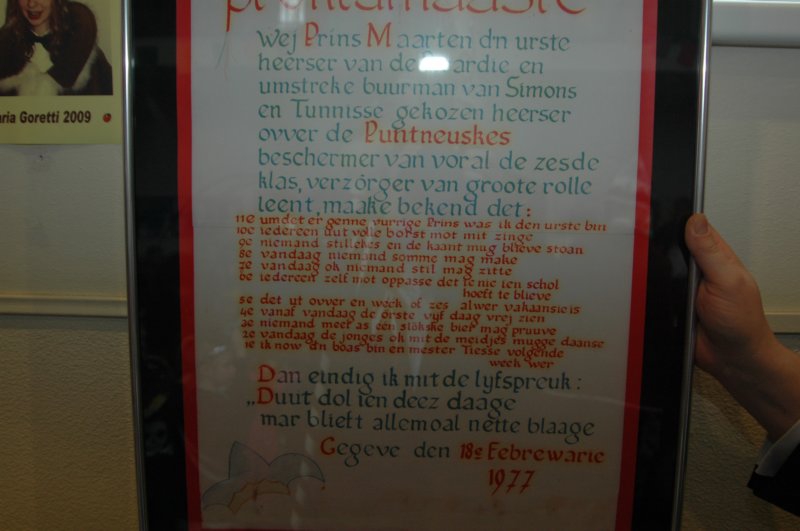 aria Goretti 2009
proklamaasie
Wej Prins Maarten d'n urste
heerser van de aardie en
umstreke buurman van Simons
en Tunnisse gekozen heerser
ovver de Puntneuskes
beschermer van voral de zesde
klas, verzórger van groote rolle
leent, maake bekend det:
11e umdet er genne vurrige Prins was ik den urste bin
10e iedereen uut volle borst mot mit zinge
9e niemand stillekes en de kaant mug blieve stoan
8e vandaag niemand somme mag make
7e vandaag ok niemand stil mag zitte
6e iedereen zelf mot oppasse det ie nie ien schol
hoeft te blieve
5e det ut ovver en week of zes alwer vakaansie is
4e vanaf vandaag de örste vyf daag vrej zien
3e niemand meer as een slökske bier mag pruuve
2e vandaag de jonges ok mit de meidjes mugge daanse
1e ik now d'n boas bin en mester Tiesse volgende
week wer
Dan eindig ik mit de lyfspreuk:
„Duut dol ien deez daage
mar blieft allemoal nette blaage
Gegeve den 18e Febrewarie
1977